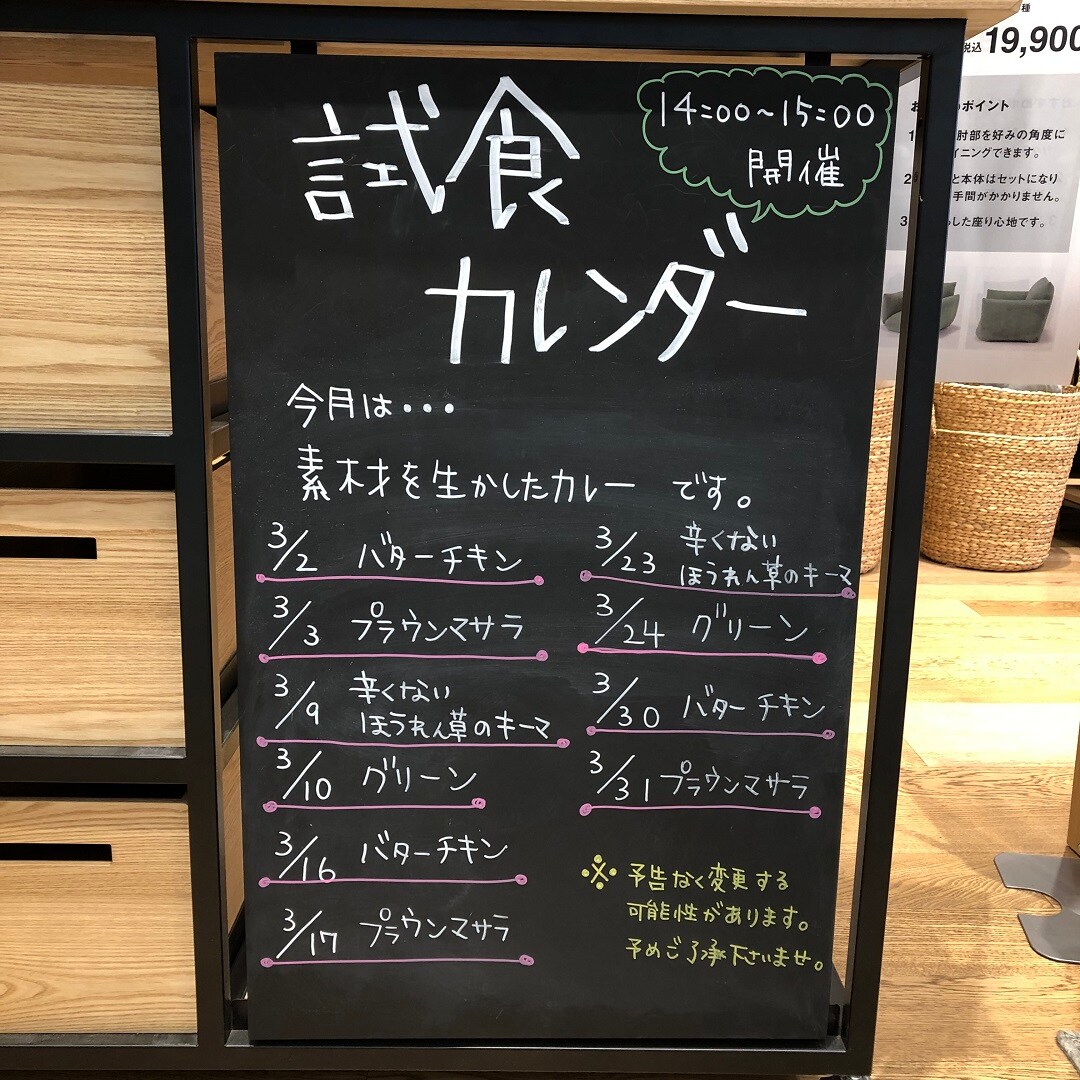 試食
カレンダー
14:00~15:00
開催
今月は・・・
素材を生かしたカレー です。
3/2 バターチキン
3/3 プラウンマサラ
3/9 辛くない
ほうれん草のキーマ
3/10 グリーン
3/16 バターチキン
3/17 プラウンマサラ
3/23 辛くない
ほうれん草のキーマ
3/24 グリーン
3/30 バターチキン
3/31 プラウンマサラ
※ 予告なく変更する
可能性があります。
予めご了承下さいませ。
種
税込 19,900
ポイント
肘部を好みの角度に
イニングできます。
と本体はセットになり
手間がかかりません。
した座り心地です。